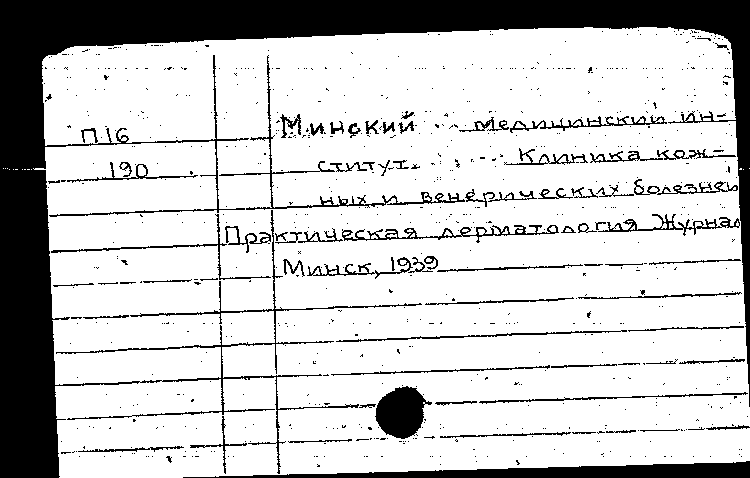 П16 Минский Медицинский ин-
190 ститут. Клиника кож-
ных и венерических болезней
Практическая дерматология Журнал
Минск, 1939